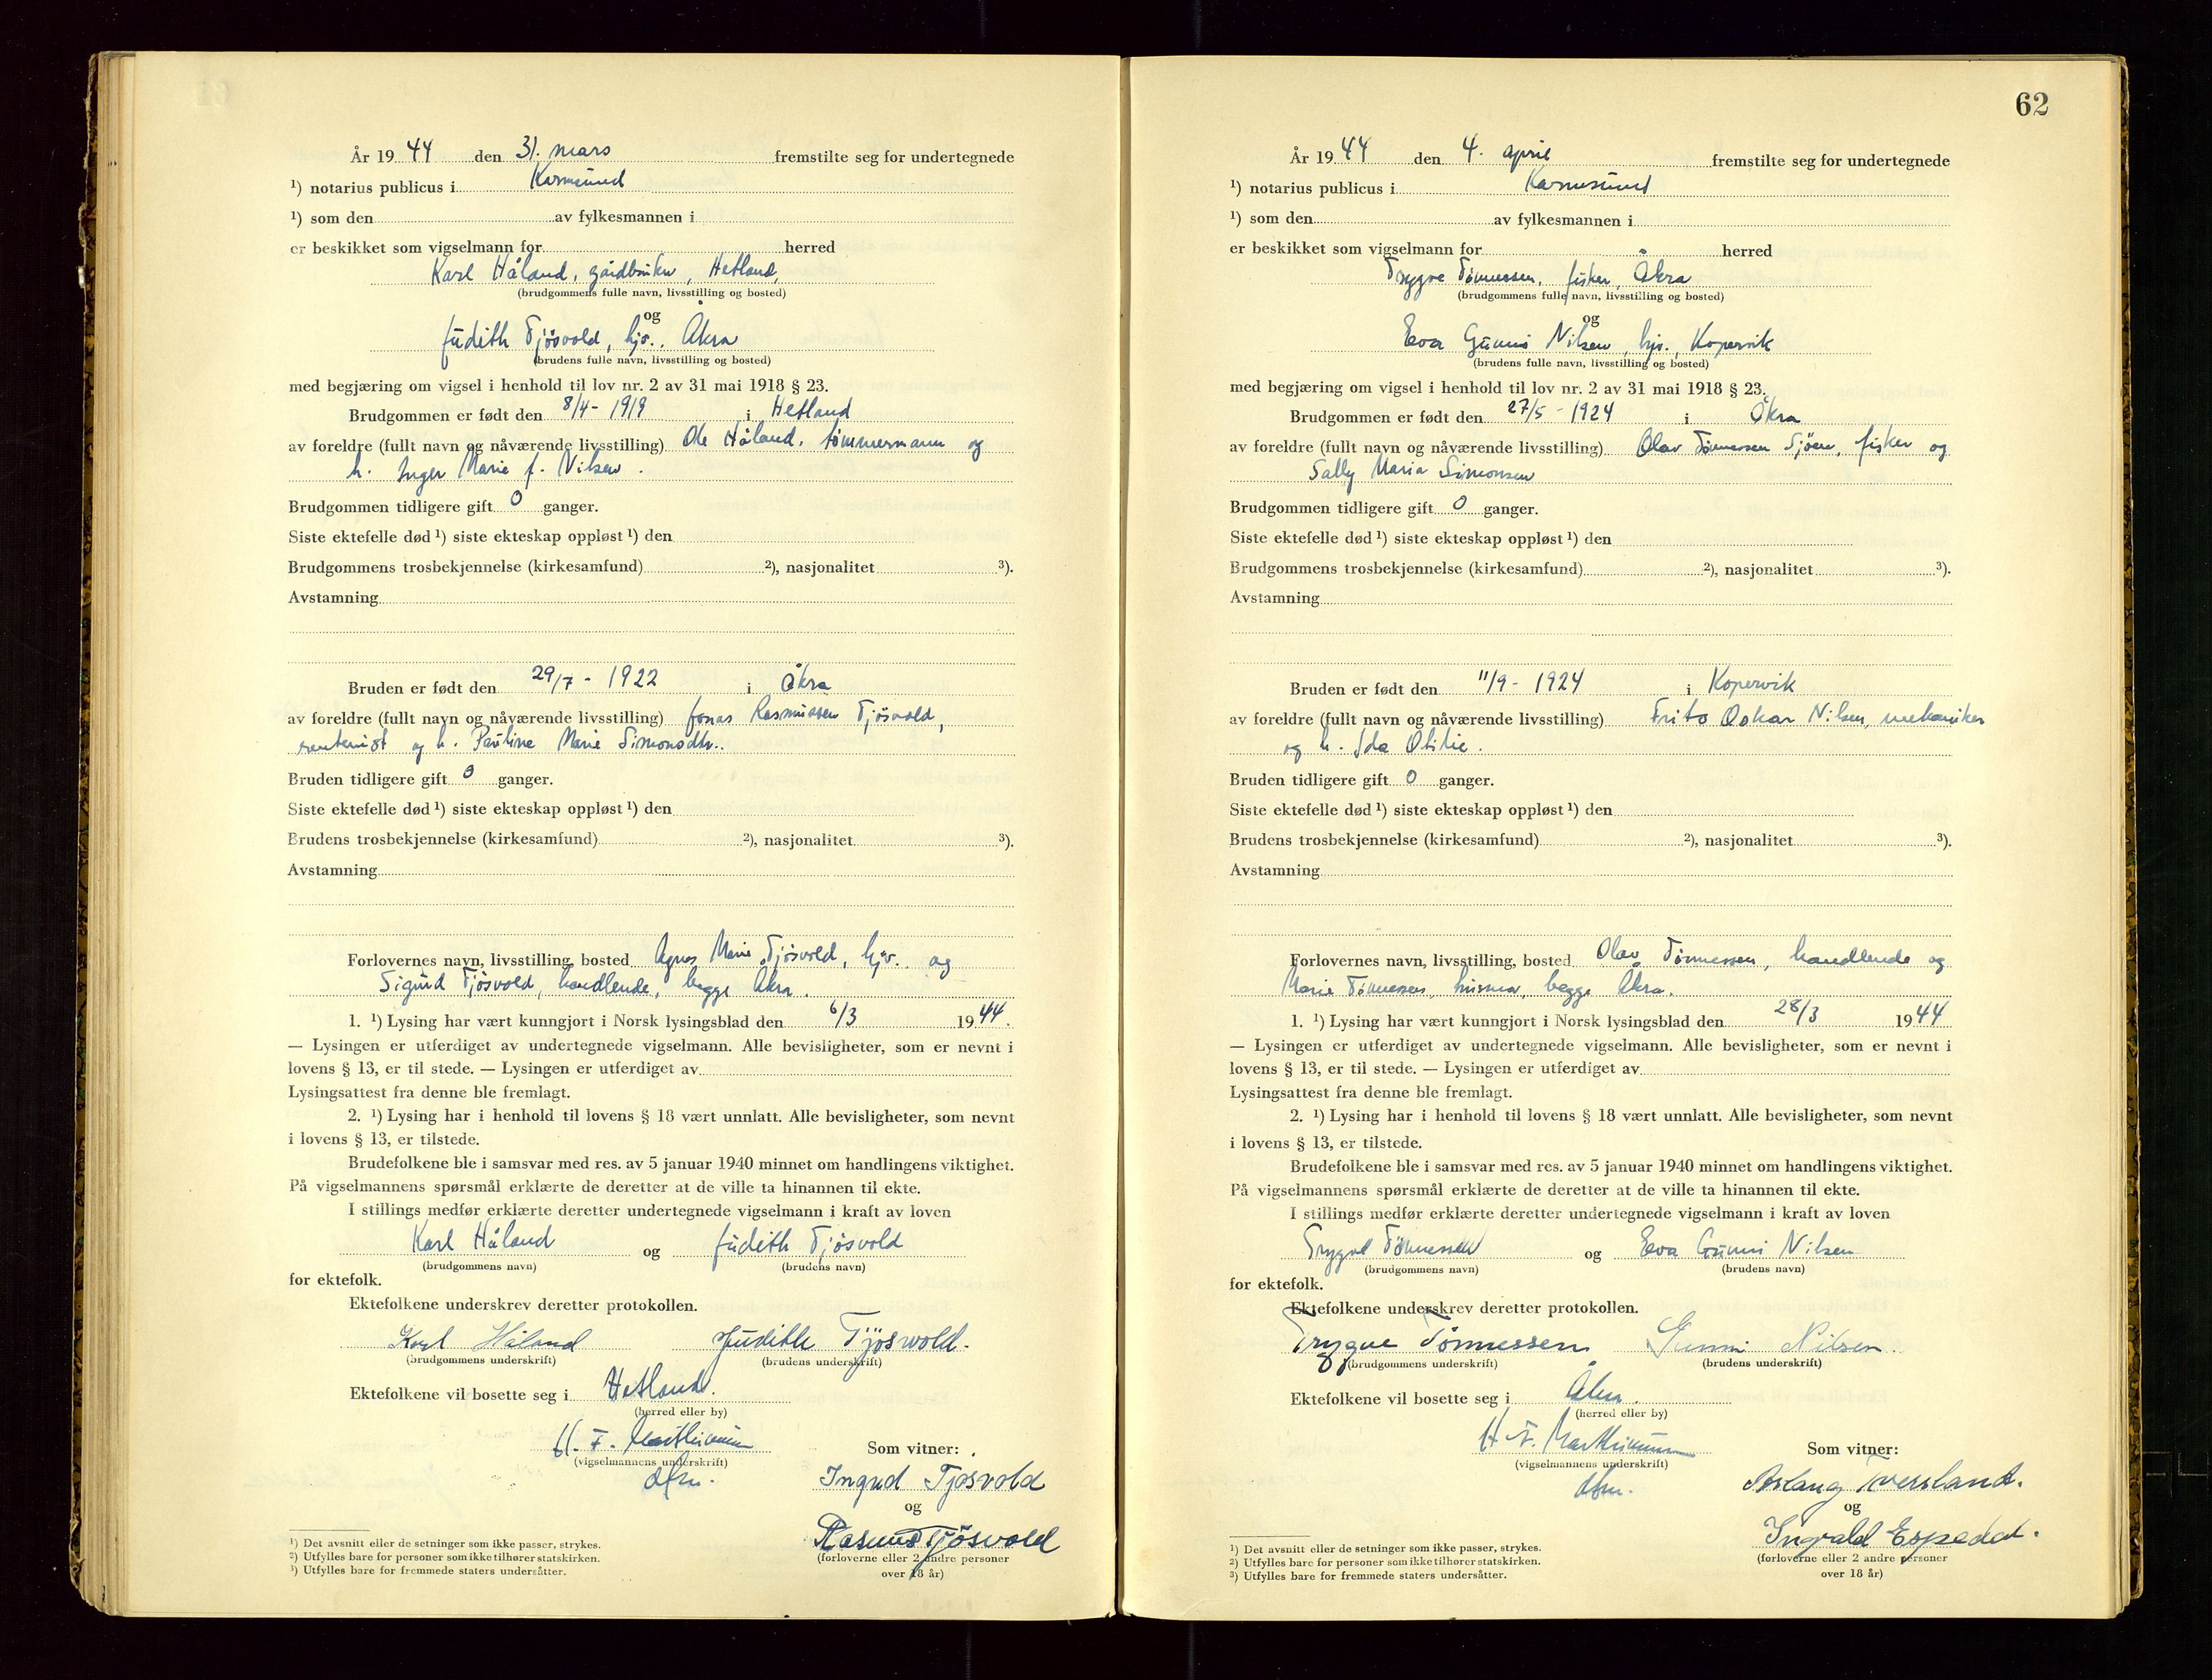 År 19 44 den 31. mars fremstilte seg for undertegnede
¹) notarius publicus i Karmsund
¹) som den av fylkesmannen i
er beskikket som vigselmann for herred
Karl Håland, gårdbruker, Hetland,
(brudgommens fulle navn, livsstilling og bosted)
og
Judith Tjösvold, hjv., Åkra
(brudens fulle navn, livsstilling og bosted)
med begjæring om vigsel i henhold til lov nr. 2 av 31 mai 1918 § 23.
Brudgommen er født den 8/4 - 1919 i Hetland
av foreldre (fullt navn og nåværende livsstilling) Ole Håland, tømmermann og
h. Inger Marie f. Nilsen.
Brudgommen tidligere gift 0 ganger.
Siste ektefelle død ¹) siste ekteskap oppløst ¹) den
Brudgommens trosbekjennelse (kirkesamfund) ²), nasjonalitet ³).
Avstamning
Bruden er født den 29/7 - 1922 i Åkra
av foreldre (fullt navn og nåværende livsstilling) Jonas Rasmussen Tjösvold,
rentenist og h. Pauline Marie Simonsdtr.
Bruden tidligere gift 0 ganger.
Siste ektefelle død ¹) siste ekteskap oppløst ¹) den
Brudens trosbekjennelse (kirkesamfund) ²), nasjonalitet ³).
Avstamning
Forlovernes navn, livsstilling, bosted Agnes Marie Tjösvold, hjv. og
Sigurd Tjösvold, handlende, begge Åkra.
1. ¹) Lysing har vært kunngjort i Norsk lysingsblad den 6/3 19 44.
— Lysingen er utferdiget av undertegnede vigselmann. Alle bevisligheter, som er nevnt i
lovens § 13, er til stede. — Lysingen er utferdiget av
Lysingsattest fra denne ble fremlagt.
2. ¹) Lysing har i henhold til lovens § 18 vært unnlatt. Alle bevisligheter, som nevnt
i lovens § 13, er tilstede.
Brudefolkene ble i samsvar med res. av 5 januar 1940 minnet om handlingens viktighet.
På vigselmannens spørsmål erklærte de deretter at de ville ta hinannen til ekte.
I stillings medfør erklærte deretter undertegnede vigselmann i kraft av loven
Karl Håland og Judith Tjösvold
(brudgommens navn) (brudens navn)
for ektefolk.
Ektefolkene underskrev deretter protokollen.
Karl Håland Judith Tjøsvold.
(brudgommens underskrift) (brudens underskrift)
Ektefolkene vil bosette seg i Hetland.
(herred eller by)
(vigselmannens underskrift)
Som vitner:
Ingrid Tjøsvold
og
Rasmus Tjösvold
(forloverne eller 2 andre personer
over 18 år)
¹) Det avsnitt eller de setninger som ikke passer, strykes.
²) Utfylles bare for personer som ikke tilhører statskirken.
³) Utfylles bare for fremmede staters undersåtter.
62
År 19 44 den 4. april fremstilte seg for undertegnede
¹) notarius publicus i Karmsund
¹) som den av fylkesmannen i
er beskikket som vigselmann for herred
Trygve Tönnessen, fisker, Åkra
(brudgommens fulle navn, livsstilling og bosted)
og
Eva Gunni Nilsen, hjv., Kopervik
(brudens fulle navn, livsstilling og bosted)
med begjæring om vigsel i henhold til lov nr. 2 av 31 mai 1918 § 23.
Brudgommen er født den 27/5 - 1924 i Åkra
av foreldre (fullt navn og nåværende livsstilling) Olav Tönnessen Sjöen, fisker og
Sally Maria Simonsen
Brudgommen tidligere gift 0 ganger.
Siste ektefelle død ¹) siste ekteskap oppløst ¹) den
Brudgommens trosbekjennelse (kirkesamfund) ²), nasjonalitet ³).
Avstamning
Bruden er født den 11/9 - 1924 i Kopervik
av foreldre (fullt navn og nåværende livsstilling) Frits Oskar Nilsen, mekaniker
og h. Ida Otilie.
Bruden tidligere gift 0 ganger.
Siste ektefelle død ¹) siste ekteskap oppløst ¹) den
Brudens trosbekjennelse (kirkesamfund) ²), nasjonalitet ³).
Avstamning
Forlovernes navn, livsstilling, bosted Olav Tönnessen, handlende og
Marie Tönnessen, husmor, begge Åkra.
1. ¹) Lysing har vært kunngjort i Norsk lysingsblad den 28/3 19 44
— Lysingen er utferdiget av undertegnede vigselmann. Alle bevisligheter, som er nevnt i
lovens § 13, er til stede. — Lysingen er utferdiget av
Lysingsattest fra denne ble fremlagt.
2. ¹) Lysing har i henhold til lovens § 18 vært unnlatt. Alle bevisligheter, som nevnt
i lovens § 13, er tilstede.
Brudefolkene ble i samsvar med res. av 5 januar 1940 minnet om handlingens viktighet.
På vigselmannens spørsmål erklærte de deretter at de ville ta hinannen til ekte.
I stillings medfør erklærte deretter undertegnede vigselmann i kraft av loven
Trygve Tönnessen og Eva Gunni Nilsen
(brudgommens navn) (brudens navn)
for ektefolk.
Ektefolkene underskrev deretter protokollen.
Trygve Tönnessen Gunni Nilsen.
(brudgommens underskrift) (brudens underskrift)
Ektefolkene vil bosette seg i Åkra.
(herred eller by)
(vigselmannens underskrift)
Som vitner:
Aslaug
og
Ingvald Espedal.
(forloverne eller 2 andre personer
over 18 år)
¹) Det avsnitt eller de setninger som ikke passer, strykes.
²) Utfylles bare for personer som ikke tilhører statskirken.
³) Utfylles bare for fremmede staters undersåtter.